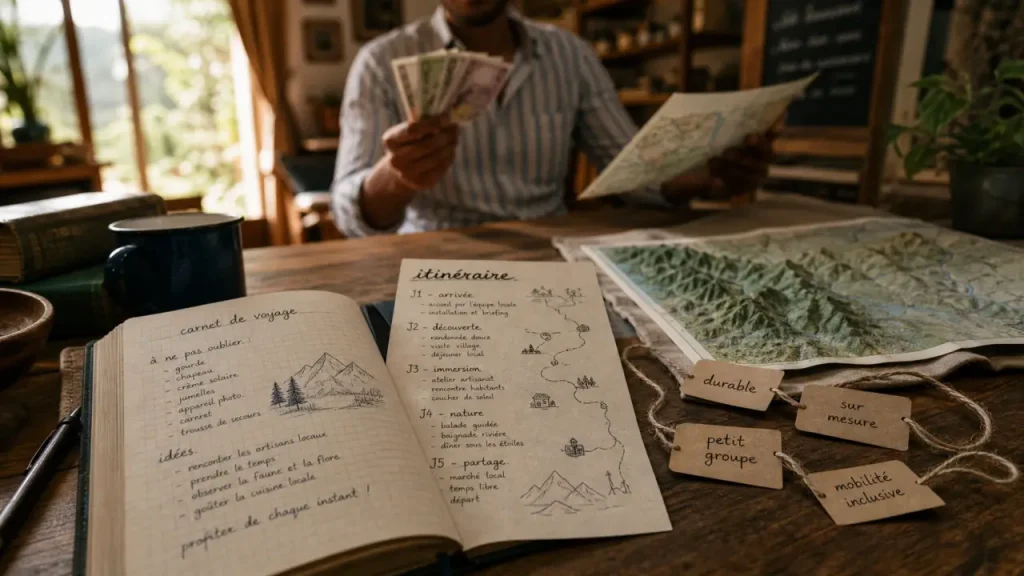 carnet de voyage
à ne pas oublier :
- gourde
- chapeau
- crème solaire
- jumelles
- appareil photo
- carnet
- trousse de secours
idées
- rencontrer les artisans locaux
- prendre le temps
- observer la faune et la flore
- goûter la cuisine locale
profiter de chaque instant !
itinéraire
J1 - arrivée
- accueil par l'équipe locale
- installation et briefing
J2 - découverte
- randonnée douce
- visite village
- déjeuner local
J3 - immersion
- atelier artisanat
- rencontre habitants
- coucher de soleil
J4 - nature
- balade guidée
- baignade rivière
- dîner sous les étoiles
J5 - partage
- marché local
- temps libre
- départ
durable
sur
mesure
petit
groupe
mobilité
inclusive